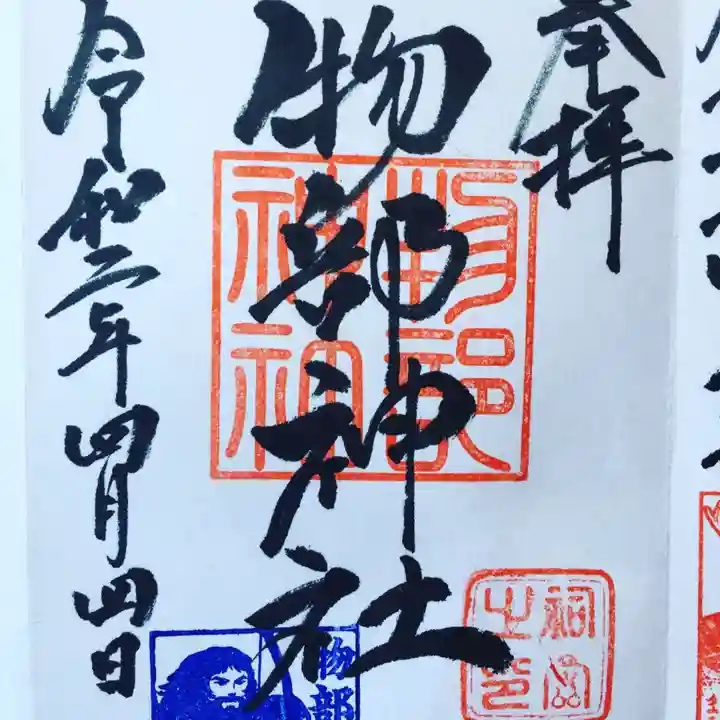 奉拝
物部神社
令和二年四月四日
物部神社
祠官之印
物部